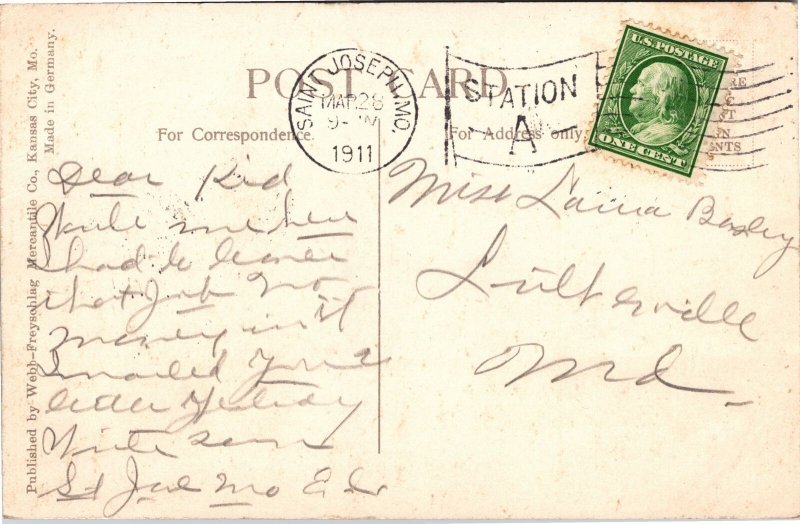 POST CARD
SAINT JOSEPH, MO.
MAR 28
1911
STATION
A
U.S. POSTAGE
ONE CENT
For Correspondence.
For Address only
Published by Webb-Freyschlag Mercantile Co., Kansas City, Mo.
Made in Germany.
Dear Kid
Write me here
I had to leave
that Job no
money in it
mailed you a
letter yesterday
Write soon
St Joe Mo
Miss Laura Basley
Lutherville
Md.